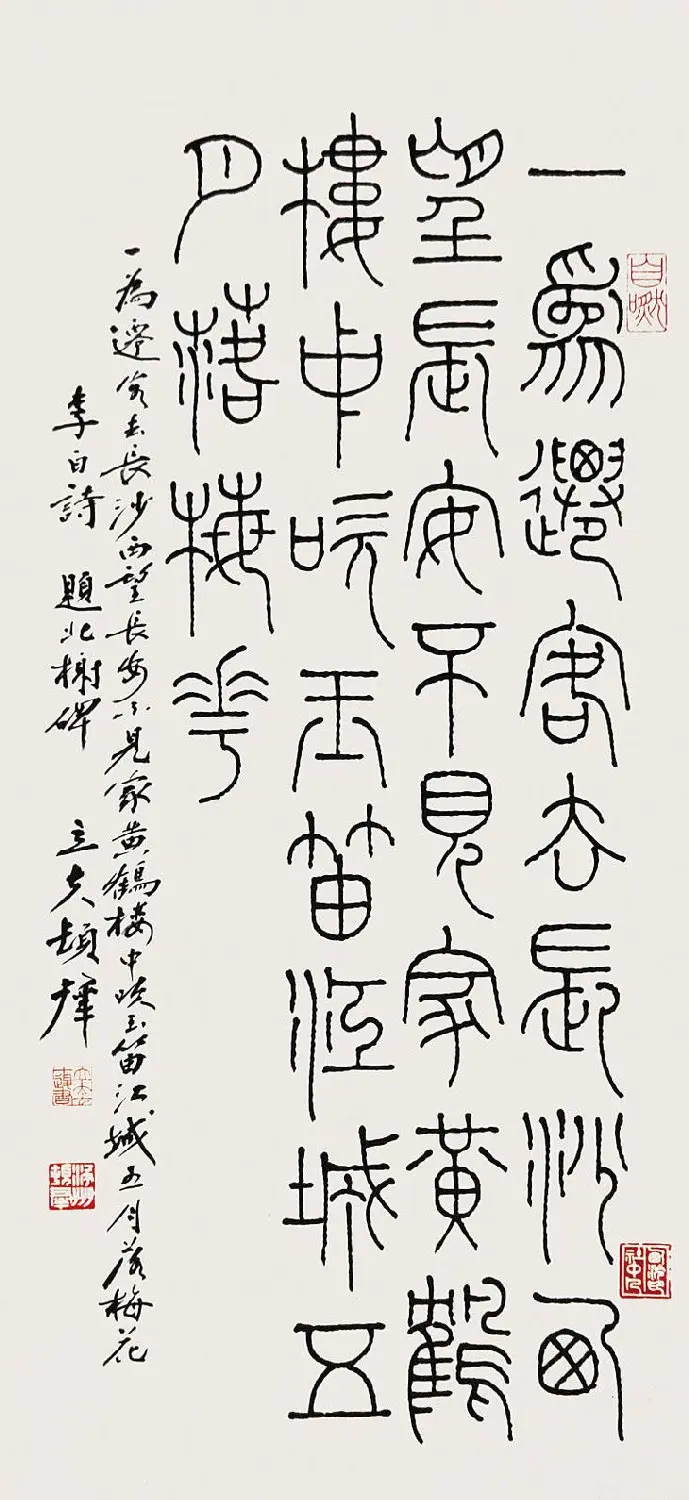 一為遷客去長沙西
望長安不見家黃鶴
樓中吹玉笛江城五
月落梅花
一為遷客去長沙西望長安不見家黃鶴樓中吹玉笛江城五月落梅花
李白詩 題北榭碑